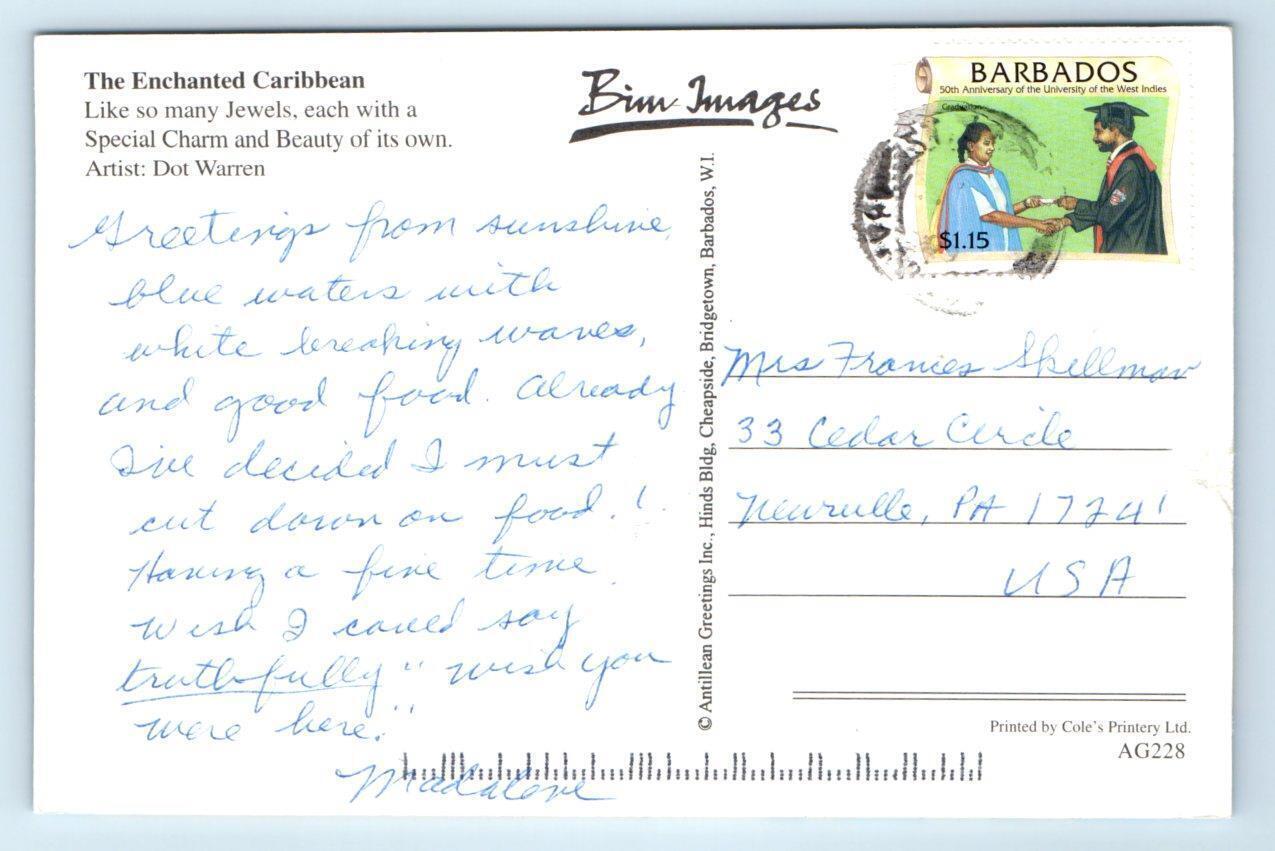 The Enchanted Caribbean
Like so many Jewels, each with a
Special Charm and Beauty of its own.
Artist: Dot Warren
Bim Images
BARBADOS
50th Anniversary of the University of the West Indies
Graduation
$1.15
Greetings from sunshine,
blue waters with
white breaking waves,
and good food. Already
I've decided I must
cut down on food!
Having a fine time.
Wish I could say
truthfully "wish you
were here."
Madalone
© Antillean Greetings Inc., Hinds Bldg, Cheapside, Bridgetown, Barbados, W.I.
Mrs Frances Skillman
33 Cedar Circle
Newville, PA 17241
USA
Printed by Cole's Printery Ltd.
AG228